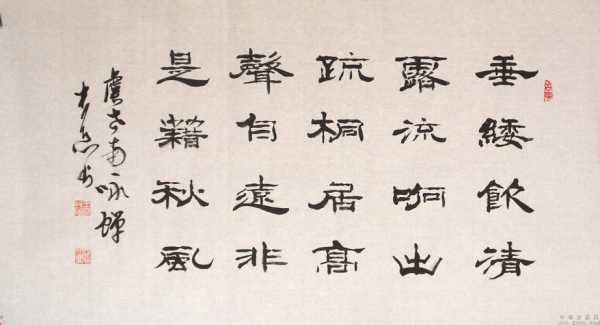 垂緌飲清
露流响出
疏桐居高
聲自遠非
是藉秋風
虞世南咏蟬
书